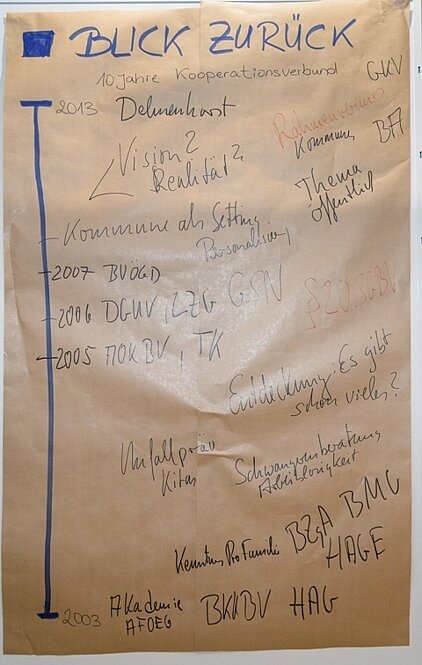 BLICK ZURÜCK
10 Jahre Kooperationsverbund
GKV
2013 Delmenhorst
Kommune BA
Vision?
Realität?
Thema
öffentlich
Kommune als Setting
2007 BVÖGD
2006 DGUV, LZG GSN
§ 20 SGBV
2005 AOKBV, TK
Entdeckung: Es gibt
schon vieles?
Unfallpräv
Kitas
Schwangerenberatung
Arbeitslosigkeit
BZgA BMG
Pro Familia
HAGE
2003 Akademie
AFOEG
BKKBV HAG